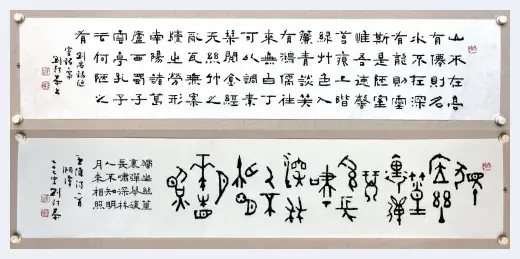 山不在高
有僊則名
水不在深
有龍則靈
斯是陋室
惟吾德馨
苔痕上階
綠草色入
簾青談笑
有鴻儒往
來無白丁
可以調素
琴閱金經
無絲竹之
亂耳無案
牘之勞形
南陽諸葛
廬西蜀子
雲亭孔子
云何陋之
有
劉禹錫
陋室銘
獨
坐幽
篁
裏彈
琴
復長
嘯
深林
人不
知
明月
來相
照
獨坐幽篁
裏彈琴復
長嘯深林
人不知明
月來相照
王維詩一首